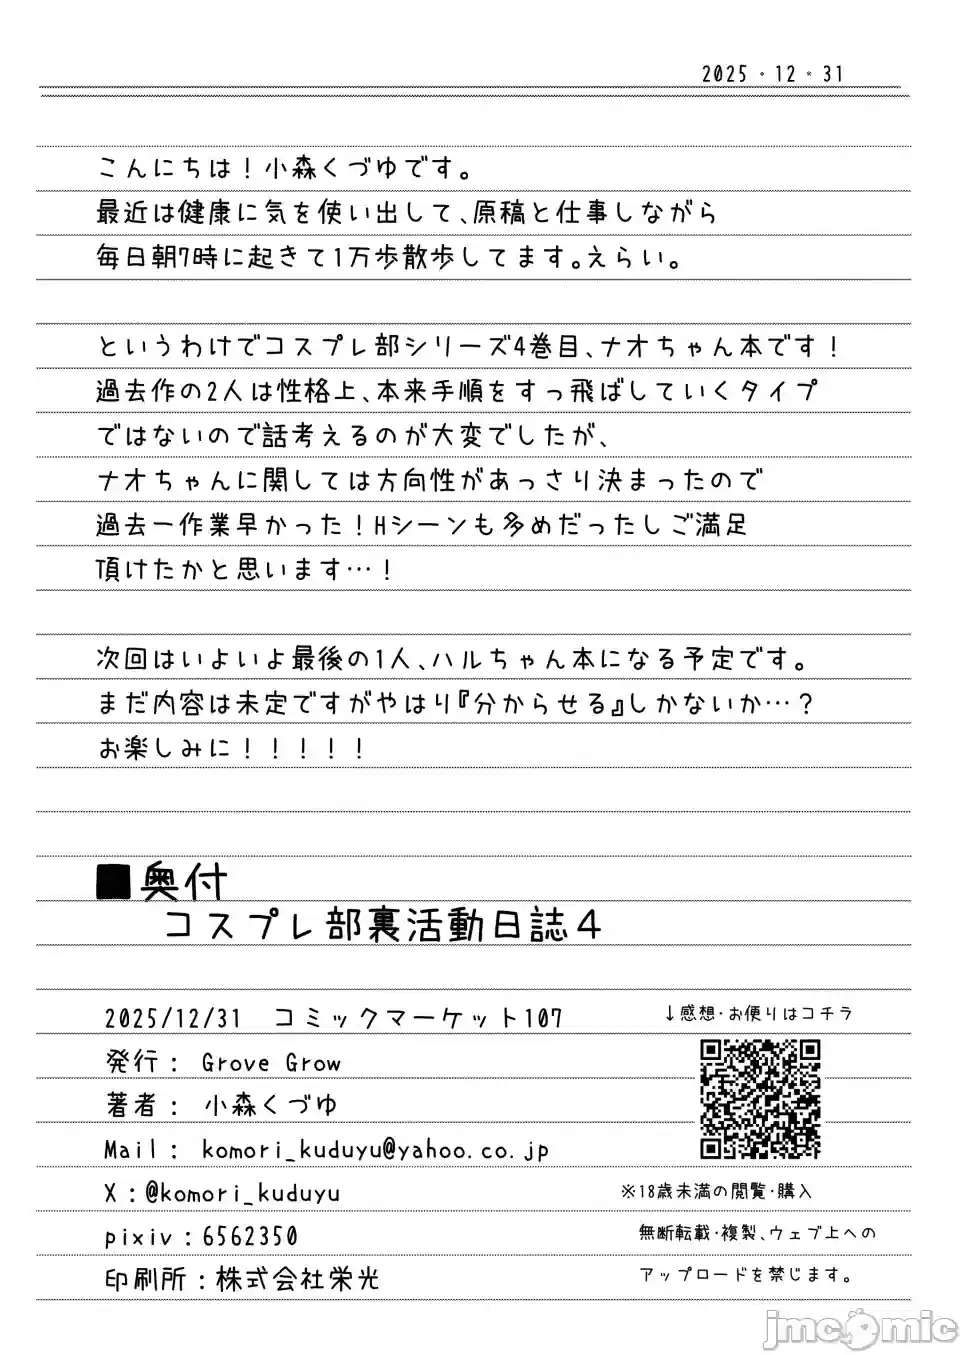 2025・12・31
こんにちは！小森くづゆです。
最近は健康に気を使い出して、原稿と仕事しながら
毎日朝7時に起きて1万歩散歩してます。えらい。
というわけでコスプレ部シリーズ4巻目、ナオちゃん本です！
過去作の2人は性格上、本来手順をすっ飛ばしていくタイプ
ではないので話考えるのが大変でしたが、
ナオちゃんに関しては方向性があっさり決まったので
過去一作業早かった！Hシーンも多めだったしご満足
頂けたかと思います…！
次回はいよいよ最後の1人、ハルちゃん本になる予定です。
まだ内容は未定ですがやはり『分からせる』しかないか…？
お楽しみに！！！！！
■奥付
コスプレ部裏活動日誌4
2025/12/31 コミックマーケット107
発行： Grove Grow
著者： 小森くづゆ
Mail： komori_kuduyu@yahoo.co.jp
X：@komori_kuduyu
pixiv：6562350
印刷所：株式会社栄光
↓感想・お便りはコチラ
※18歳未満の閲覧・購入
無断転載・複製、ウェブ上への
アップロードを禁じます。
jmcomic